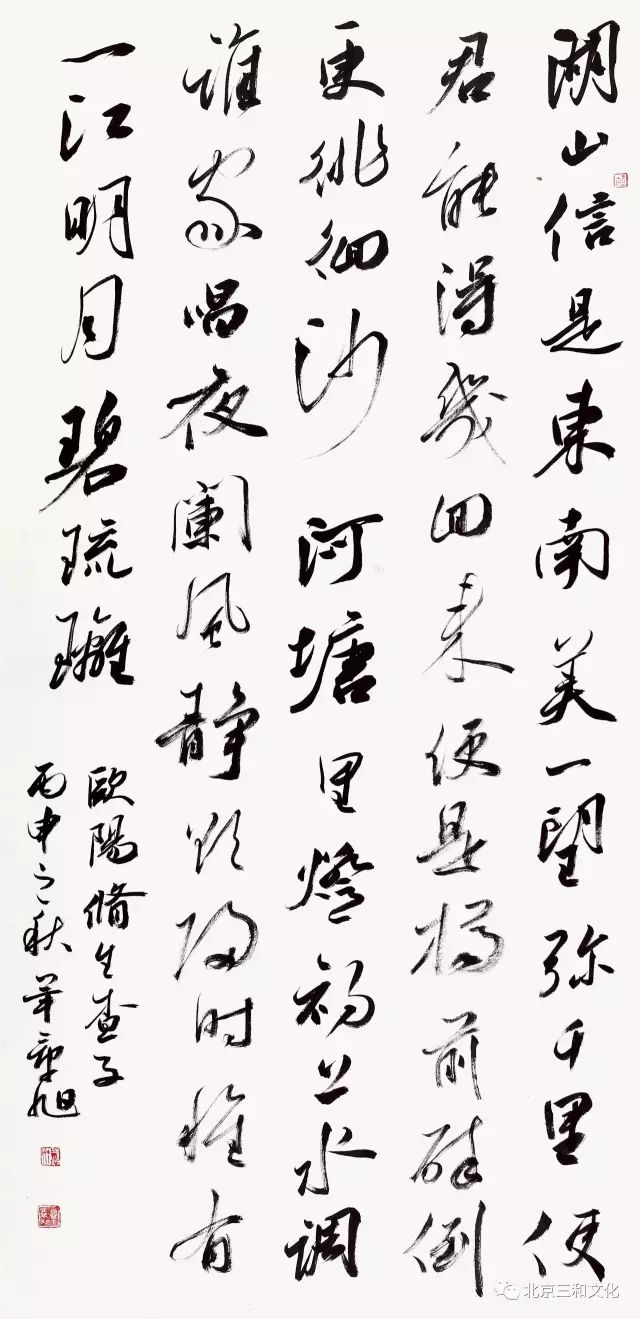 湖山信是東南美一望弥千里使
君能得幾回来便是樽前醉倒
更徘徊沙河塘里燈初上水調
誰家唱夜闌風静欲歸时惟有
一江明月碧琉璃
歐陽脩生查子
丙申之秋章旭
北京三和文化